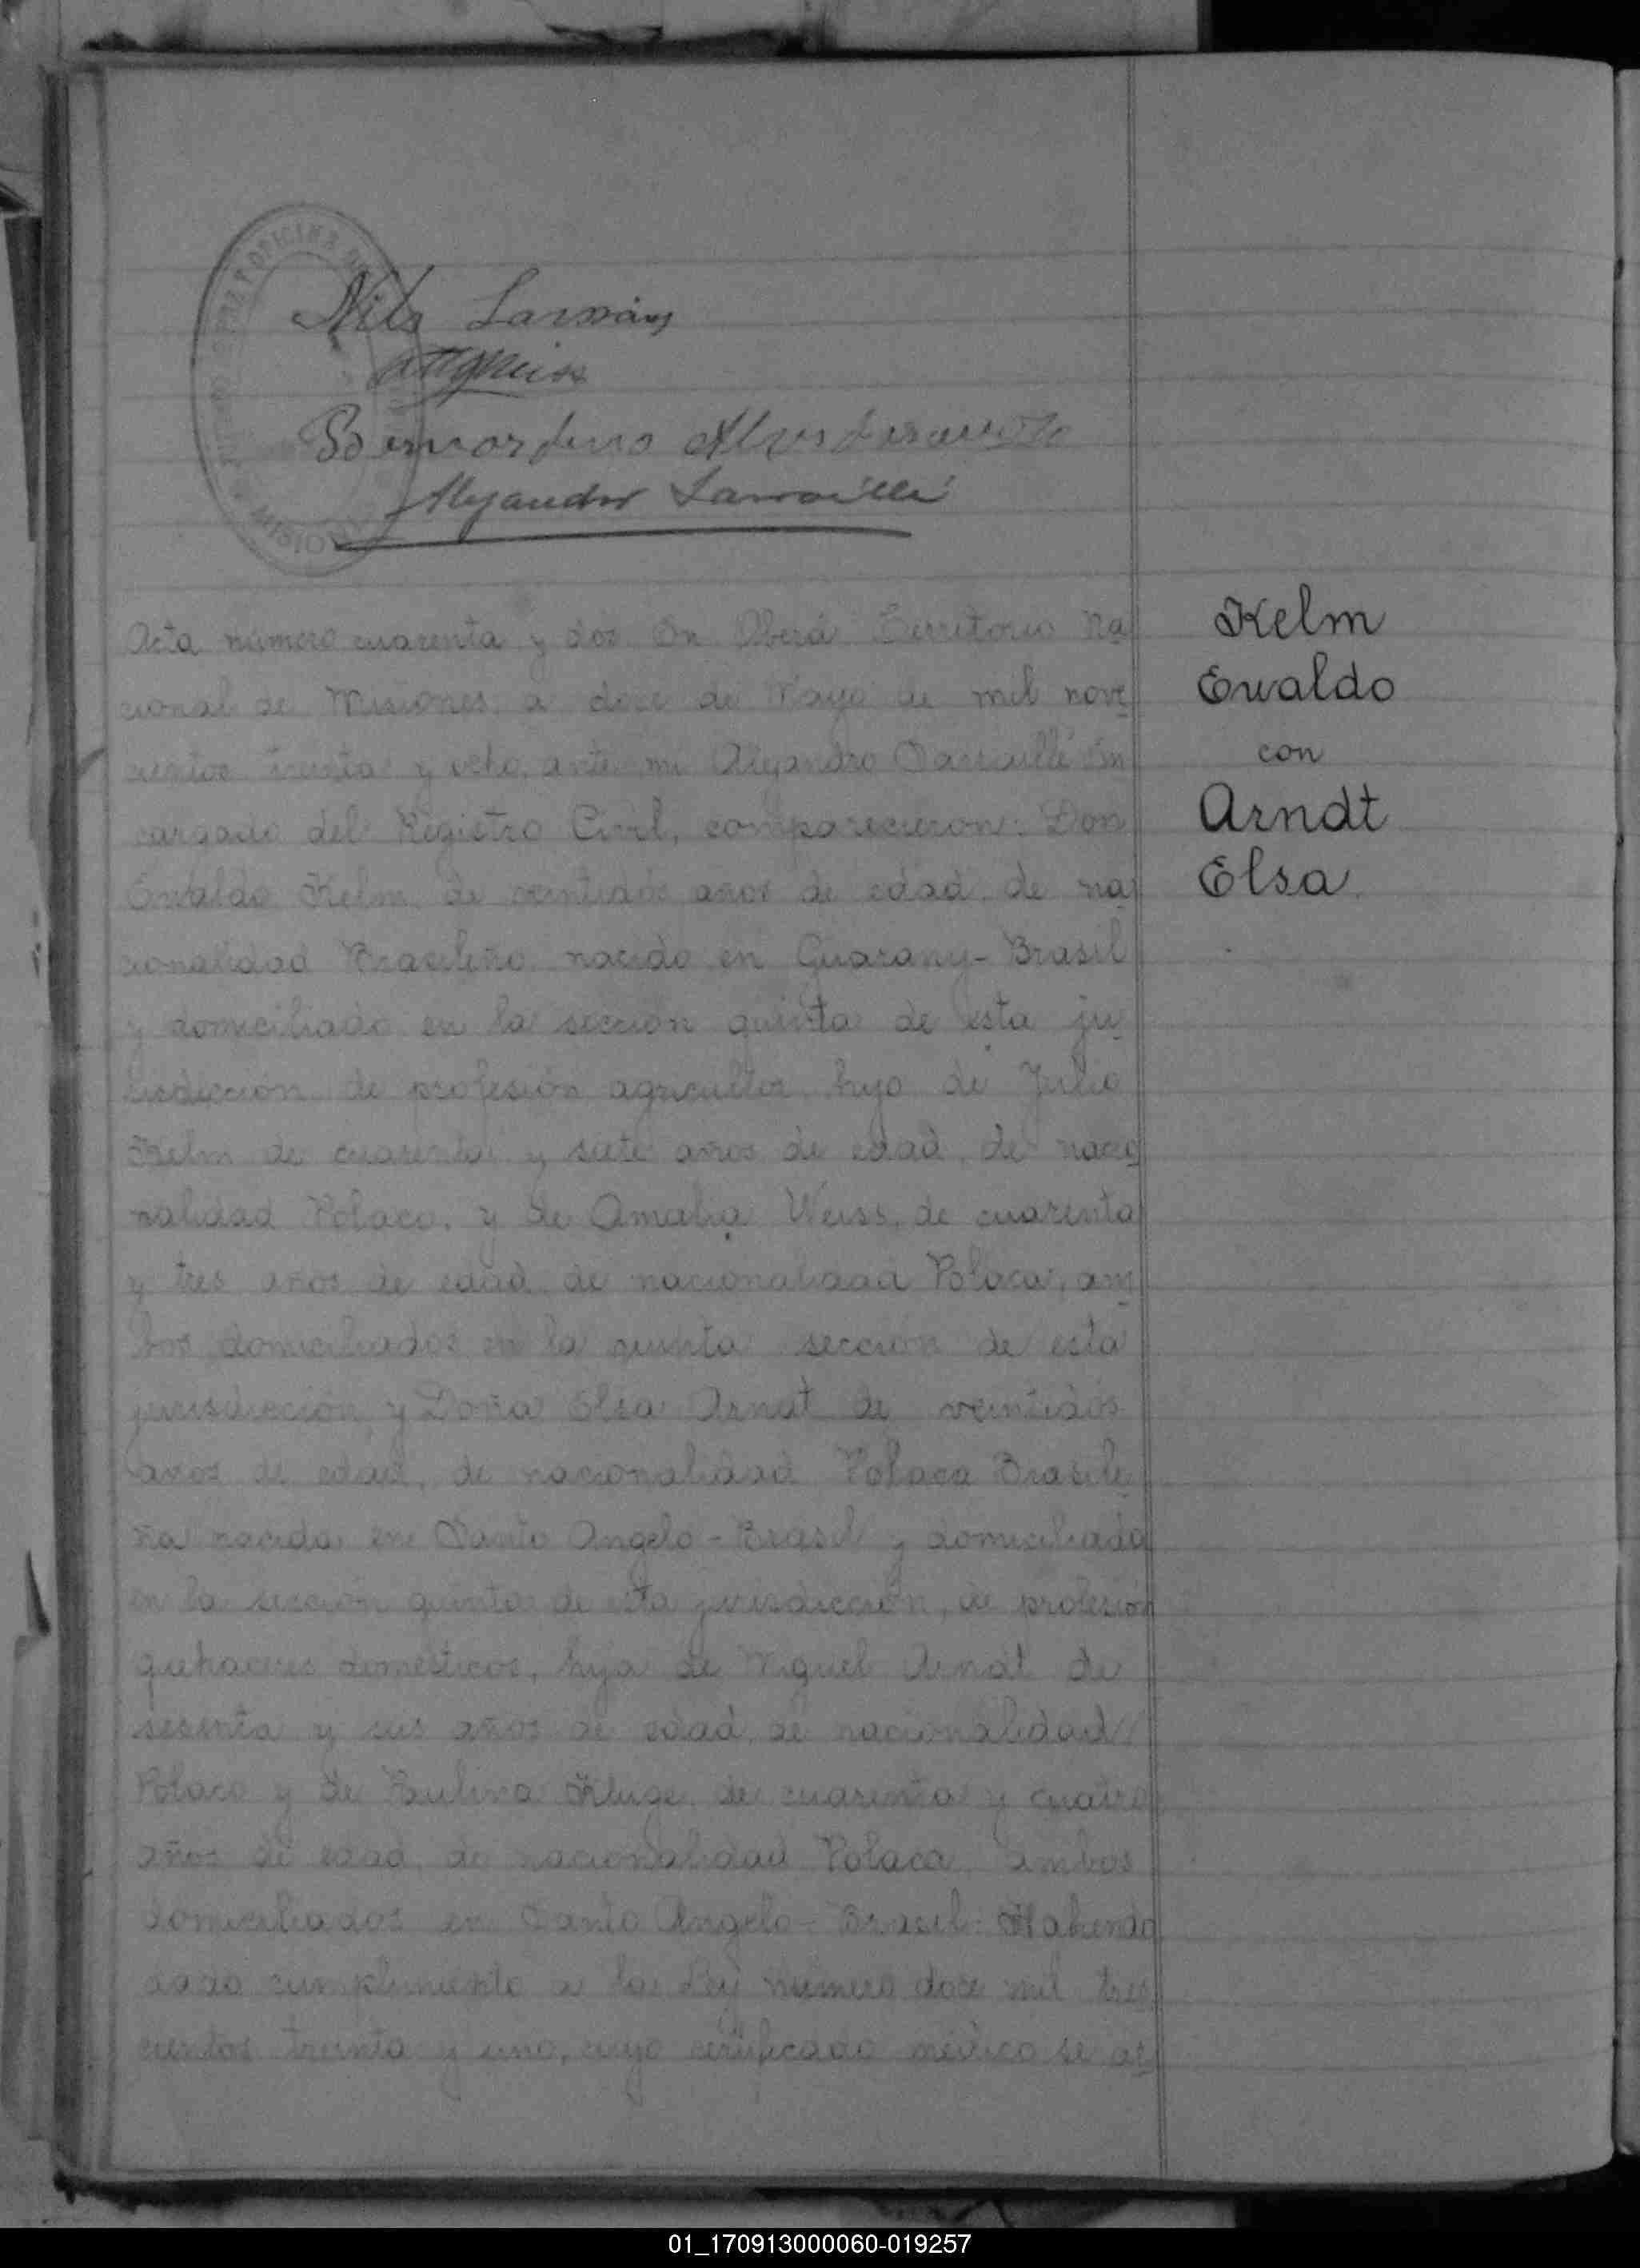 Nils
Bernardino
Alejandro
MISIONES
Kelm
Ewaldo
con
Arndt
Elsa
Acta número cuarenta y dos En Oberá Territorio Na
cional de Misiones a doce de Mayo de mil nove
cientos treinta y ocho, ante mi Alejandro Sarraillé En
cargado del Registro Civil, comparecieron: Don
Ewaldo Kelm, de veintidós años de edad, de na
cionalidad Brasileño, nacido en Guarany- Brasil
y domiciliado en la sección quinta de esta ju
risdicción, de profesión agricultor, hijo de Julio
Kelm de cuarenta y siete años de edad, de nacio
nalidad Polaco, y de Amalia Weiss, de cuarenta
y tres años de edad, de nacionalidad Polaca, am
bos domiciliados en la quinta sección de esta
jurisdicción y Doña Elsa Arndt de veintidós
años de edad, de nacionalidad Polaca Brasile
ña nacida en Santo Angelo - Brasil y domiciliada
en la sección quinta de esta jurisdicción, de profesión
quehaceres domésticos, hija de Miguel Arndt de
sesenta y seis años de edad, de nacionalidad
Polaco y de Paulina Kluge, de cuarenta y cuatro
años de edad, de nacionalidad Polaca, ambos
domiciliados en Santo Angelo - Brasil. Habiendo
dado cumplimiento a la Ley número doce mil tres
cientos treinta y uno, cuyo certificado médico se ar
01_170913000060-019257